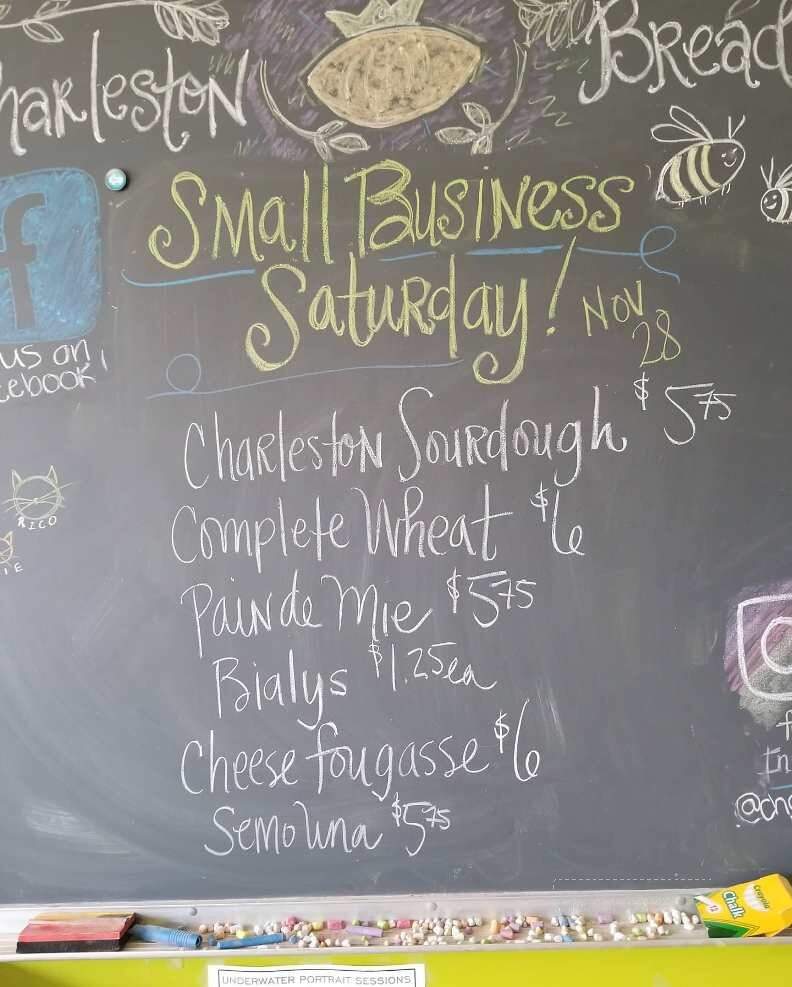 harleston Bread
Small Business
Saturday! Nov
28
us on
cebook!
Charleston Sourdough $5.75
Complete Wheat $6
RICO
IE
Pain de Mie $5.75
Bialys $1.25ea
Cheese fougasse $6
Semolina $5.75
f
In
@chs
Crayola
Chalk
UNDERWATER PORTRAIT SESSIONS